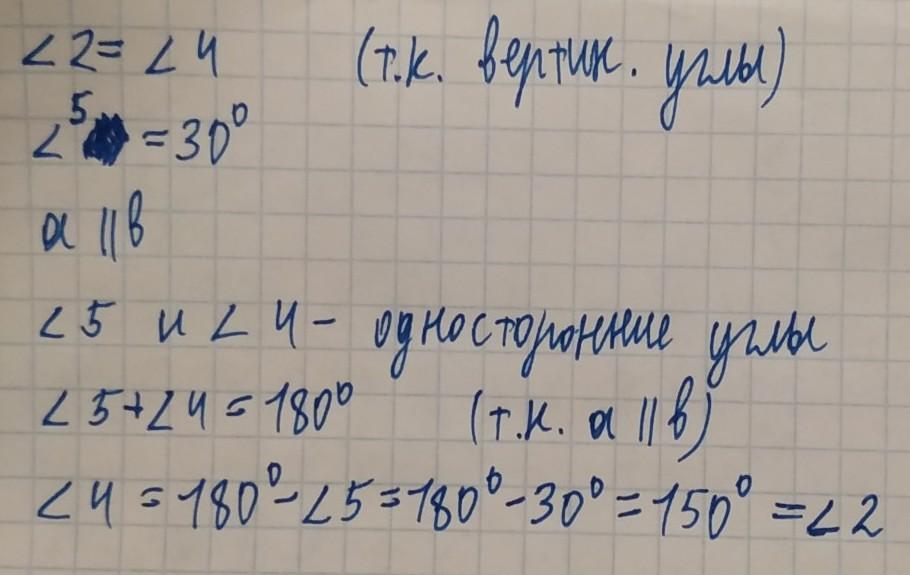 ∠2 = ∠4 (т.к. вертик. углы)
∠5 = 30°
a || в
∠5 и ∠4 - односторонние углы
∠5+∠4 = 180° (т.к. a || в)
∠4 = 180° - ∠5 = 180° - 30° = 150° = ∠2